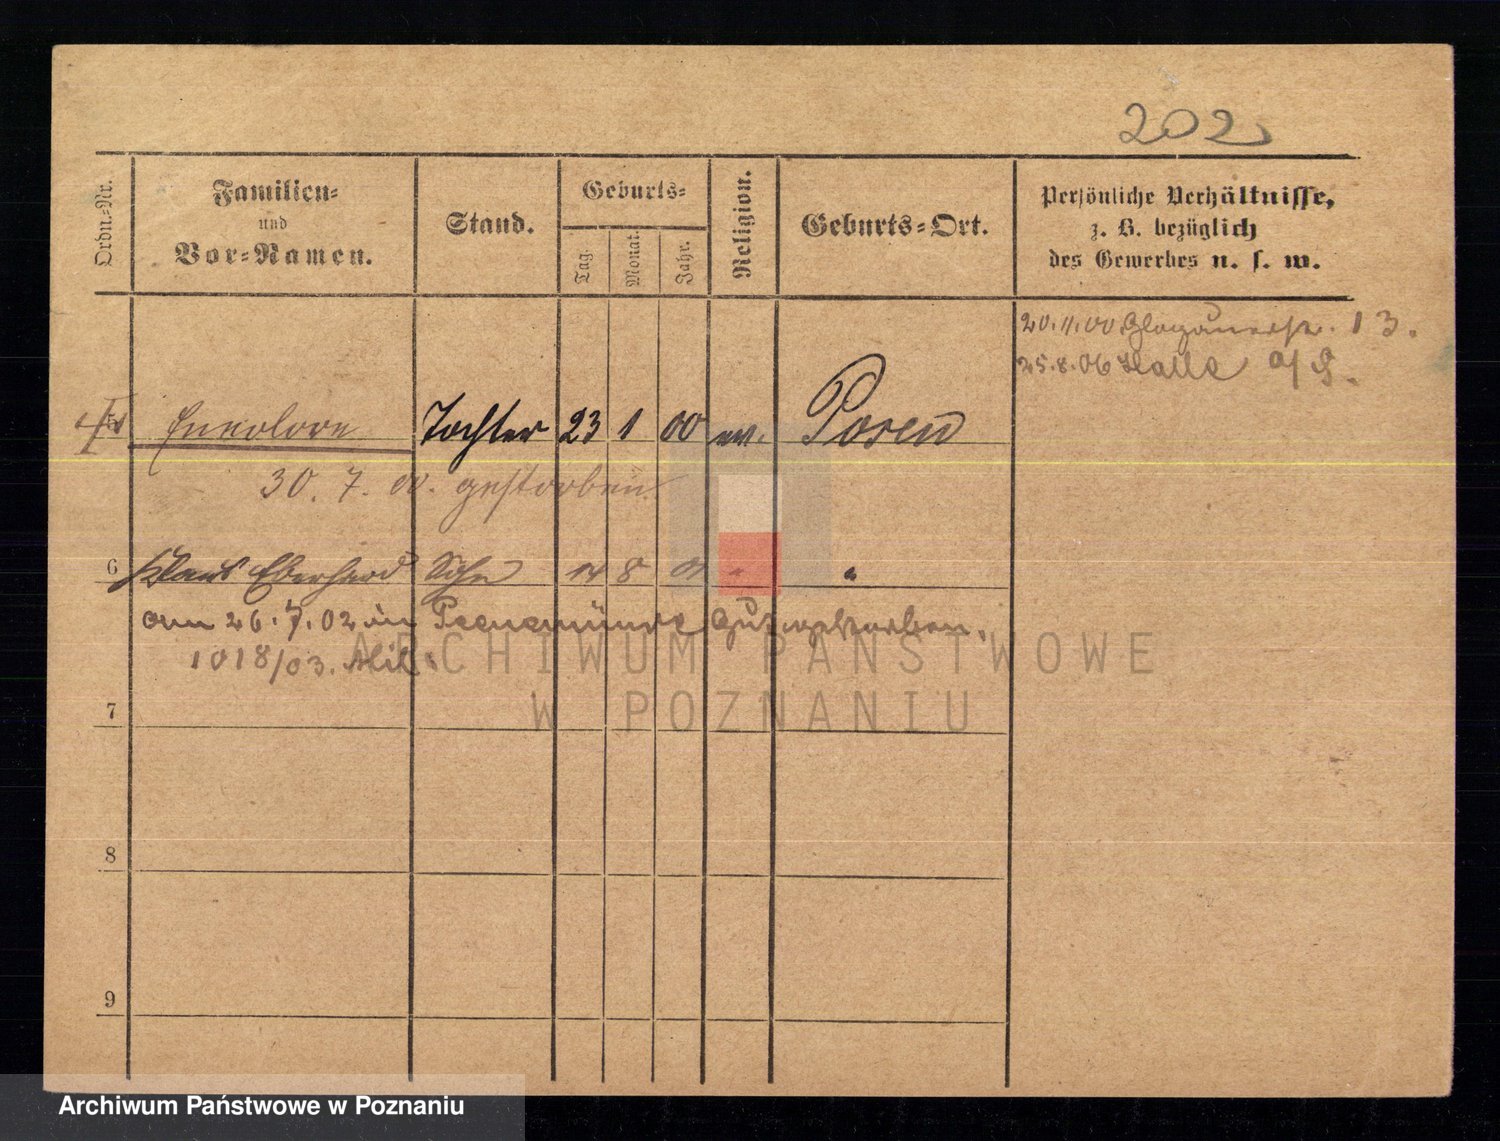 202
Ordn.-Nr.
Familien-
und
Vor-Namen.
Stand.
Geburts-
Tag.
Monat.
Jahr.
Religion.
Geburts-Ort.
Persönliche Verhältnisse,
z. B. bezüglich
des Gewerbes u. s. w.
20.11.00 Glogauerstr. 13.
25.8.06 Halle a/S.
Tochter 23 1 00 ev. Posen
30. 7. 00. gestorben
6 Klaus Eberhard Sohn 14 8 01 " "
am 26.7.02 in Peenemünde gestorben.
1018/03. Mil.
7
8
9
ARCHIWUM PAŃSTWOWE
W POZNANIU
Archiwum Państwowe w Poznaniu